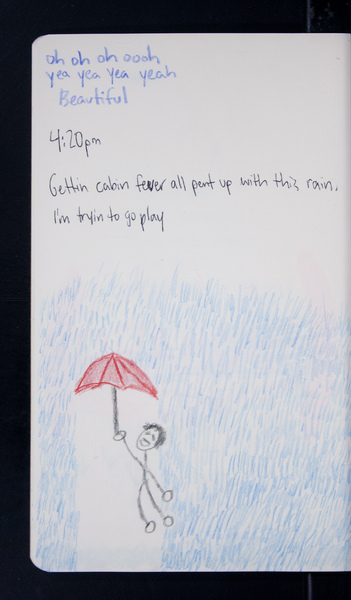 oh oh oh oooh
yea yea yea yeah
Beautiful
4:20pm
Gettin cabin fever all pent up with this rain,
I'm tryin to go play